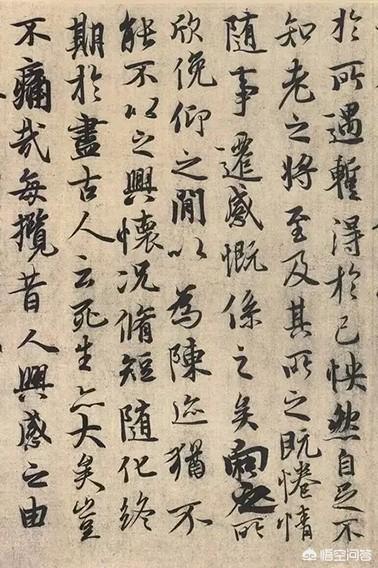 於所遇蹔得於己怏然自足不
知老之將至及其所之既惓情
隨事遷感慨係之矣向之所
欣俛仰之閒以為陳迹猶不
能不以之興懷況脩短隨化終
期於盡古人云死生亦大矣豈
不痛哉每攬昔人興感之由
悟空问答